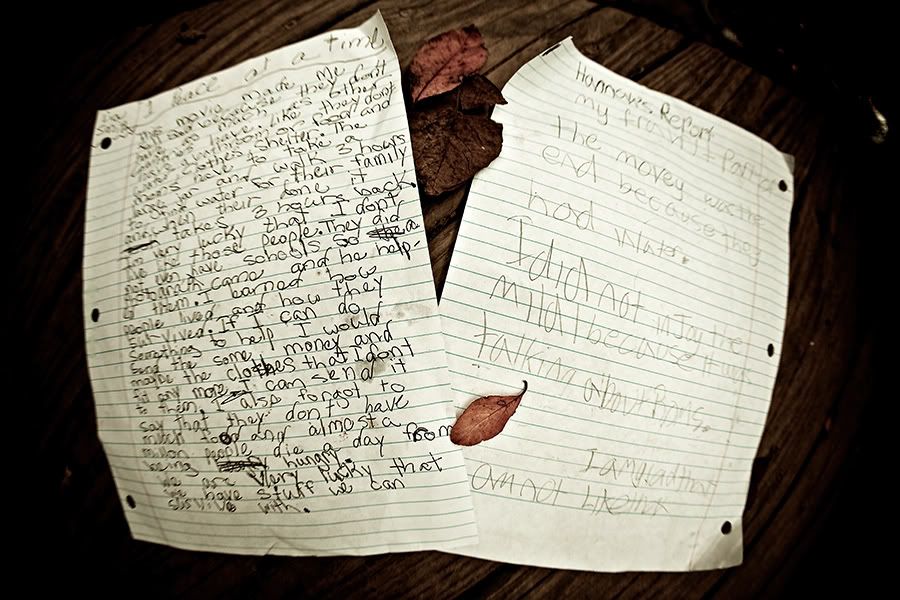 1 Peace at a time
The movie made me
feel sad because they don't
have
shelter. The
moms have to take a
large jar and walk 3 hours
for water for their family
and when their done it
takes 3 hours back.
I'm very lucky that I don't
live like those people. They did
not even have schools so
came and he help-
to them. I learned how
people lived and how they
survived. If I can do
something to help I would
send the some money and
maybe the clothes that I don't
fit any more I can send it
to them. I also forgot to
say that they don't have
much food and almost a
millon people die a day from
being hungry.
we are very lucky that
we have stuff we can
survive with.
Report
my frav
the movey was the
end because they
had water.
I did not injoy the
midl because it was
talking about
I am glad that
am not like her